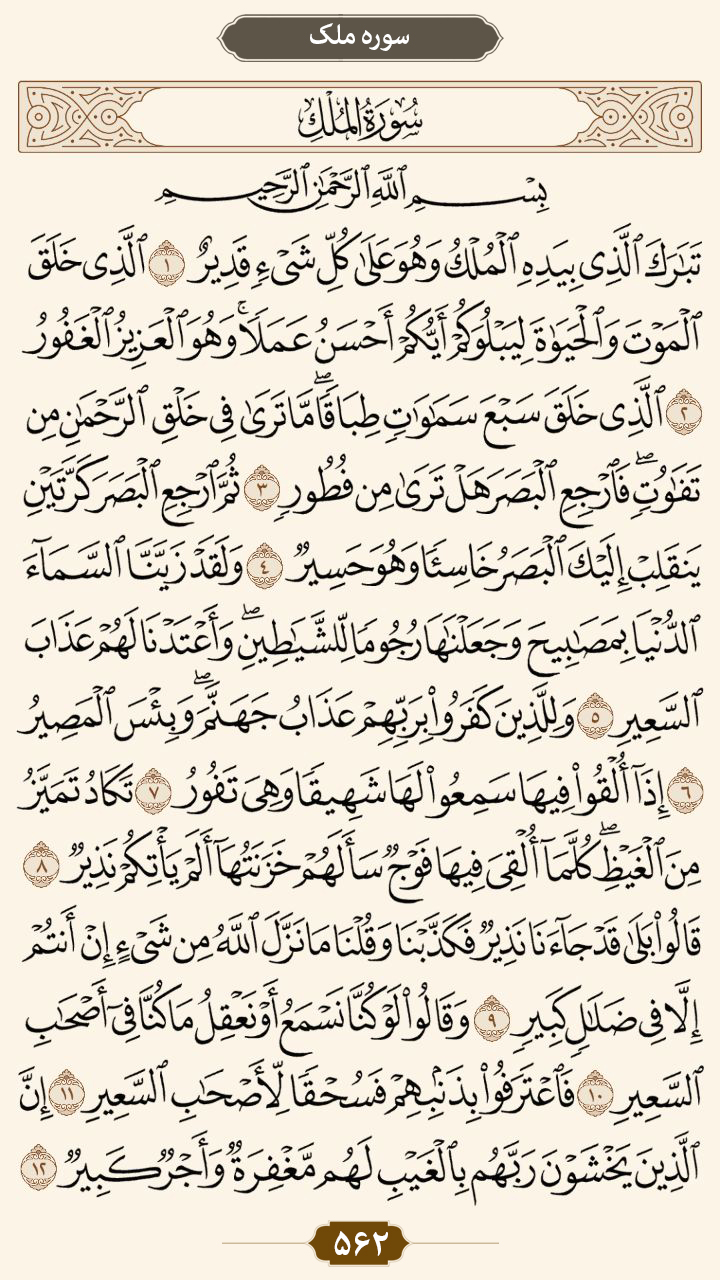 سوره ملک
سُورَةُ المُلْكِ
بِسْمِ ٱللَّهِ ٱلرَّحْمَٰنِ ٱلرَّحِيمِ
تَبَٰرَكَ ٱلَّذِى بِيَدِهِ ٱلْمُلْكُ وَهُوَ عَلَىٰ كُلِّ شَىْءٍ قَدِيرٌ ١ ٱلَّذِى خَلَقَ
ٱلْمَوْتَ وَٱلْحَيَوٰةَ لِيَبْلُوَكُمْ أَيُّكُمْ أَحْسَنُ عَمَلًا ۚ وَهُوَ ٱلْعَزِيزُ ٱلْغَفُورُ
٢ ٱلَّذِى خَلَقَ سَبْعَ سَمَٰوَٰتٍ طِبَاقًا ۖ مَّا تَرَىٰ فِى خَلْقِ ٱلرَّحْمَٰنِ مِن
تَفَٰوُتٍ ۖ فَٱرْجِعِ ٱلْبَصَرَ هَلْ تَرَىٰ مِن فُطُورٍ ٣ ثُمَّ ٱرْجِعِ ٱلْبَصَرَ كَرَّتَيْنِ
يَنقَلِبْ إِلَيْكَ ٱلْبَصَرُ خَاسِئًا وَهُوَ حَسِيرٌ ٤ وَلَقَدْ زَيَّنَّا ٱلسَّمَآءَ
ٱلدُّنْيَا بِمَصَٰبِيحَ وَجَعَلْنَٰهَا رُجُومًا لِّلشَّيَٰطِينِ ۖ وَأَعْتَدْنَا لَهُمْ عَذَابَ
ٱلسَّعِيرِ ٥ وَلِلَّذِينَ كَفَرُوا۟ بِرَبِّهِمْ عَذَابُ جَهَنَّمَ ۖ وَبِئْسَ ٱلْمَصِيرُ
٦ إِذَآ أُلْقُوا۟ فِيهَا سَمِعُوا۟ لَهَا شَهِيقًا وَهِىَ تَفُورُ ٧ تَكَادُ تَمَيَّزُ
مِنَ ٱلْغَيْظِ ۖ كُلَّمَآ أُلْقِىَ فِيهَا فَوْجٌ سَأَلَهُمْ خَزَنَتُهَآ أَلَمْ يَأْتِكُمْ نَذِيرٌ ٨
قَالُوا۟ بَلَىٰ قَدْ جَآءَنَا نَذِيرٌ فَكَذَّبْنَا وَقُلْنَا مَا نَزَّلَ ٱللَّهُ مِن شَىْءٍ إِنْ أَنتُمْ
إِلَّا فِى ضَلَٰلٍ كَبِيرٍ ٩ وَقَالُوا۟ لَوْ كُنَّا نَسْمَعُ أَوْ نَعْقِلُ مَا كُنَّا فِىٓ أَصْحَٰبِ
ٱلسَّعِيرِ ١٠ فَٱعْتَرَفُوا۟ بِذَنۢبِهِمْ فَسُحْقًا لِّأَصْحَٰبِ ٱلسَّعِيرِ ١١ إِنَّ
ٱلَّذِينَ يَخْشَوْنَ رَبَّهُم بِٱلْغَيْبِ لَهُم مَّغْفِرَةٌ وَأَجْرٌ كَبِيرٌ ١٢
۵۶۲